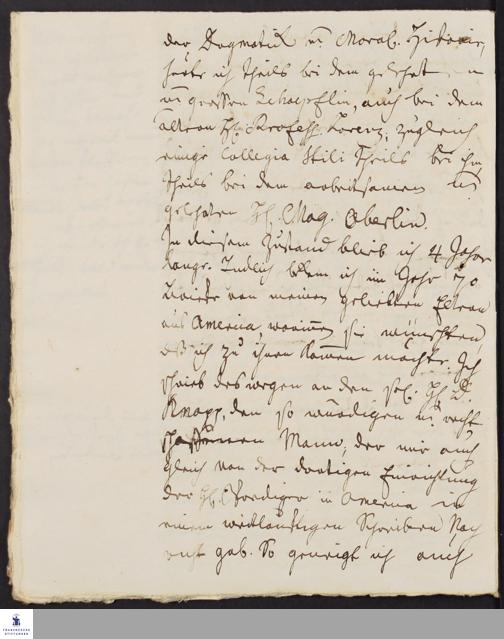 der Dogmatick u. Moral. Historie,
hörte ich theils bei dem gelehrten
u. grossen Schoepflin, auch bei dem
ältern H. Profess. Lorenz; zugleich
einige Collegia Stili theils bei ihm,
theils bei dem arbeitsamen u.
gelehrten H. Mag. Oberlin.
In diesem Zustand blieb ich 4 Jahre
lange. Endlich bekam ich im Jahr 70
Briefe von meinen geliebten Eltern
aus America, worinnen sie wünschten
daß ich zu ihnen kommen möchte. Ich
schrieb deswegen an den sel. H. D.
Knapp, den so würdigen u. recht
schaffenen Mann, der mir auch
gleich von der dortigen Einrichtung
der H. Prediger in America in
einem weitläuftigen Schreiben Nach
richt gab. So geneigt ich auch
FRANCKESCHE
STIFTUNGEN